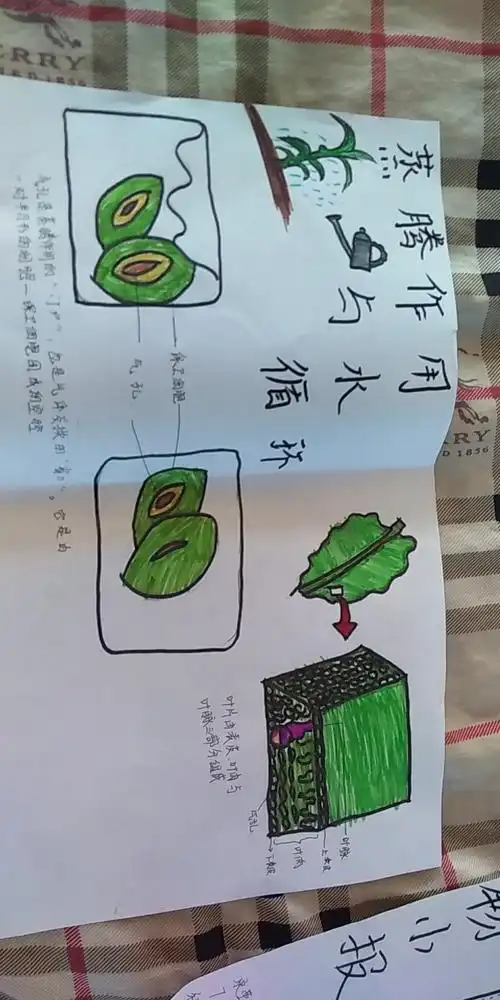 蒸腾作用
与水
循环
保卫细胞
气孔
气孔是蒸腾作用的“门户”,也是气体交换的“窗口”。它是由
一对半月形的细胞—保卫细胞围成的空腔
叶片由表皮、叶肉与
叶脉三部分组成
叶脉
上表皮
叶肉
下表皮
气孔
物小报
ERRY
D 1856
RY
D 1856